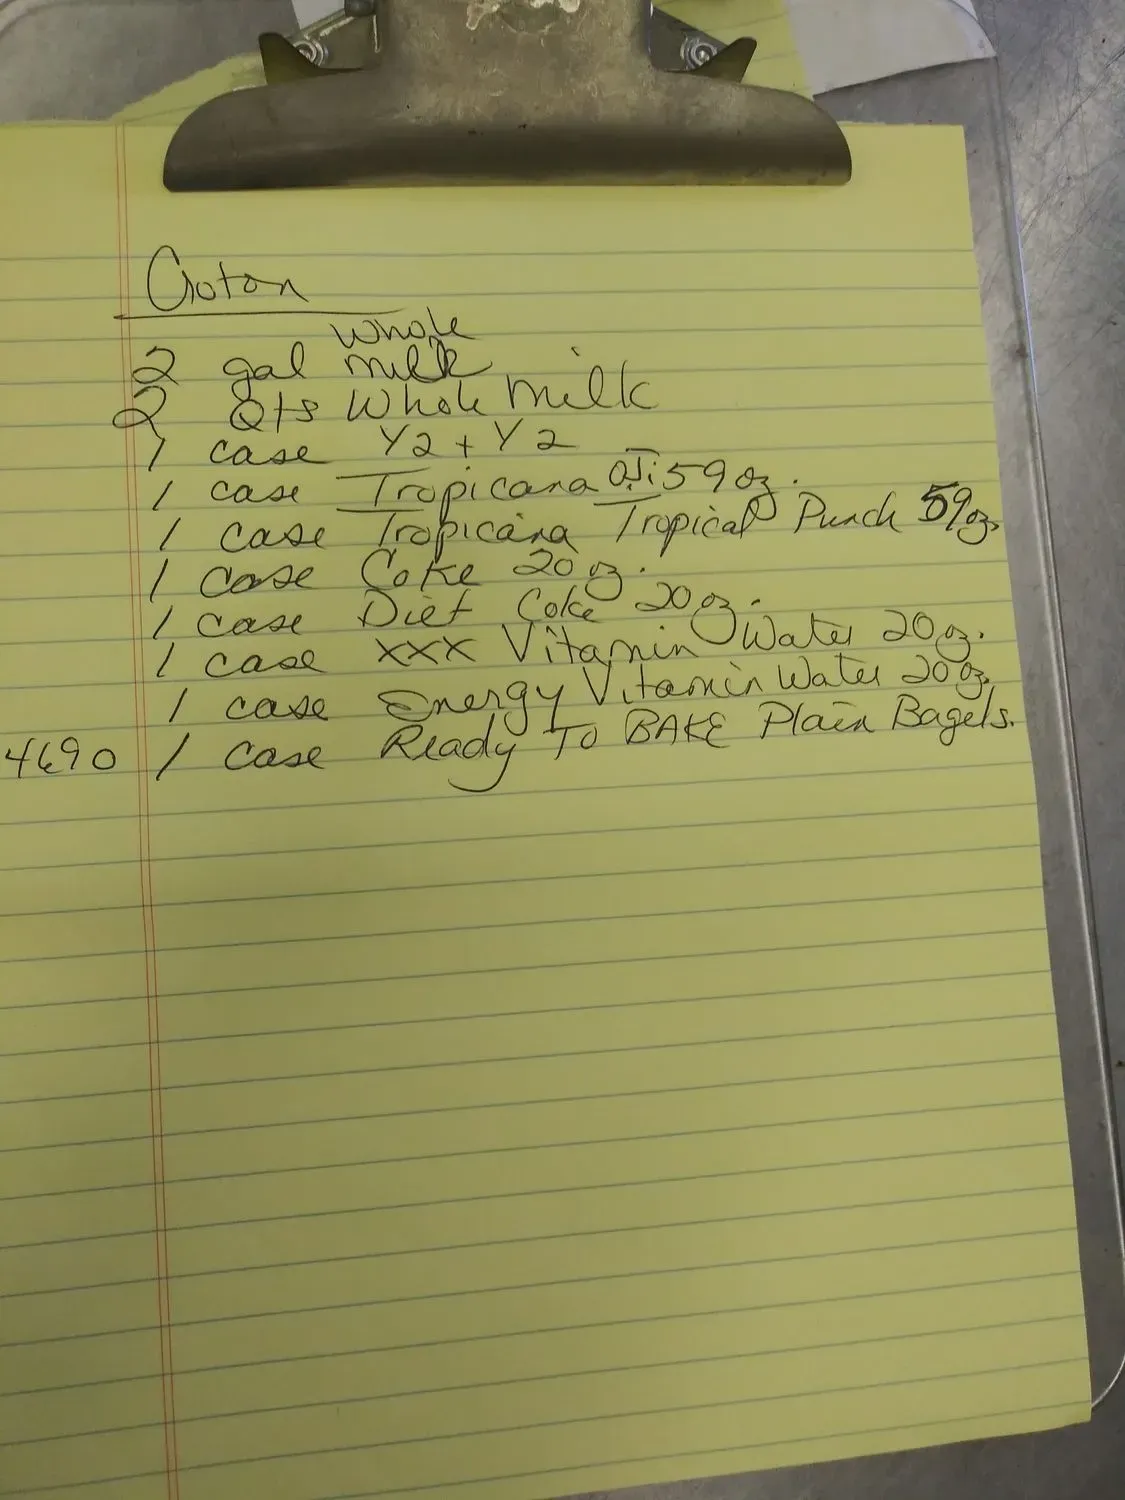 Groton
2 gal whole milk
2 Qts Whole milk
1 case Y2 + Y2
1 case Tropicana O.J. 59 oz.
1 case Tropicana Tropical Punch 59 oz.
1 case Coke 20 oz.
1 case Diet Coke 20 oz.
1 case XXX Vitamin Water 20 oz.
1 case Energy Vitamin Water 20 oz.
4690 1 case Ready To BAKE Plain Bagels.